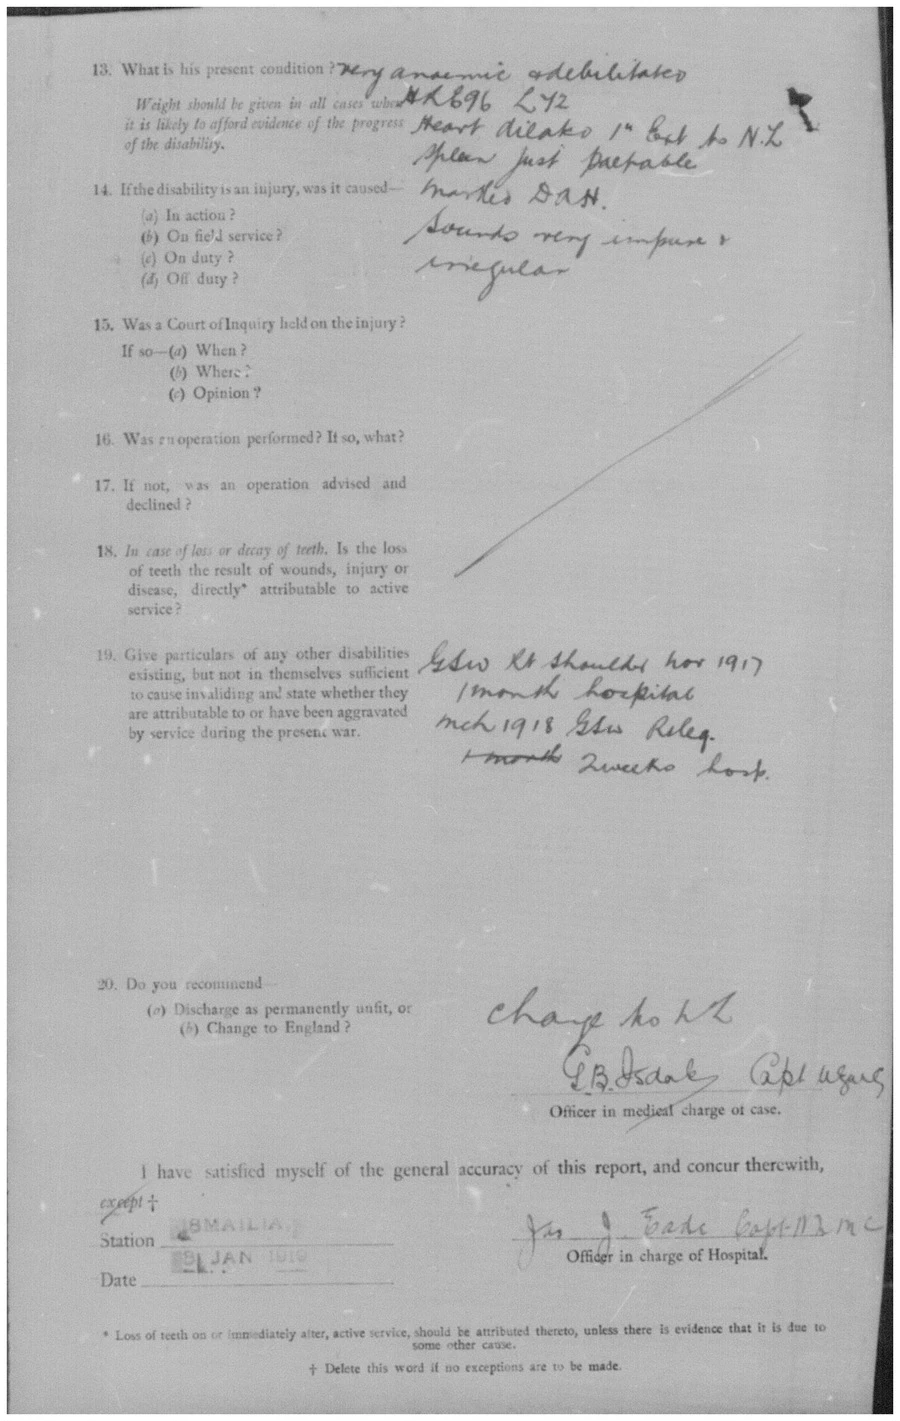 13. What is his present condition? Very anaemic & debilitated
Weight should be given in all cases when
it is likely to afford evidence of the progress
of the disability.
Heart dilated 1" Ext to N.L
Spleen just palpable
Marked DAH.
Sounds very impure &
irregular
14. If the disability is an injury, was it caused—
(a) In action?
(b) On field service?
(c) On duty?
(d) Off duty?
15. Was a Court of Inquiry held on the injury?
If so—(a) When?
(b) Where?
(c) Opinion?
16. Was an operation performed? If so, what?
17. If not, was an operation advised and
declined?
18. In case of loss or decay of teeth. Is the loss
of teeth the result of wounds, injury or
disease, directly* attributable to active
service?
19. Give particulars of any other disabilities
existing, but not in themselves sufficient
to cause invaliding and state whether they
are attributable to or have been aggravated
by service during the present war.
GSW Rt shoulder Nov 1917
1 month hospital
Mch 1918 GSW Rt leg.
1 month 2 weeks hosp.
20. Do you recommend—
(a) Discharge as permanently unfit, or
(b) Change to England?
Change to
G.B. Isdale Capt
Officer in medical charge of case.
I have satisfied myself of the general accuracy of this report, and concur therewith,
except †
Station ISMAILIA.
Jas J. Eade Capt
Officer in charge of Hospital.
8 JAN 1919
Date
* Loss of teeth on or immediately after, active service, should be attributed thereto, unless there is evidence that it is due to
some other cause.
† Delete this word if no exceptions are to be made.